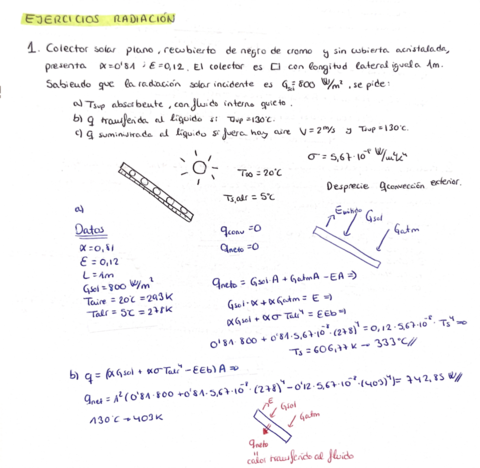 EJERCICIOS RADIACIÓN
1. Colector solar plano, recubierto de negro de cromo y sin cubierta acristalada,
presenta α=0'81 i E=0,12. El colector es □ con longitud lateral igual a 1m.
Sabiendo que la radiación solar incidente es Gsol=800 W/m², se pide:
a) Tsup absorbente, con fluido interno quieto.
b) q transferida al líquido si Tsup=130ºC.
c) q suministrada al líquido si fuera hay aire V=2m/s y Tsup=130ºC.
σ = 5,67·10⁻⁸ W/m²K⁴
T∞ = 20ºC
Ts,alr = 5ºC
Desprecie qconvección exterior.
a)
Datos
α=0,81
E=0,12
L=1m
Gsol=800 W/m²
Taire=20ºC=293K
Talr=5ºC=278K
qconv=0
qneto=0
Gsol
Gatm
qneto=Gsol·A+Gatm·A-EA ⇒
Gsol·α+αGatm=E ⇒
αGsol+ασTalr⁴=EEb ⇒
0'81·800+0'81·5,67·10⁻⁸·(278)⁴=0,12·5,67·10⁻⁸·Ts⁴ ⇒
Ts=606,77K → 333ºC//
b) q=(αGsol+ασTalr⁴-EEb)A ⇒
qnet=1²(0'81·800+0'81·5,67·10⁻⁸·(278)⁴-0'12·5,67·10⁻⁸·(403)⁴)=742,85W//
130ºC → 403K
E
Gsol
Gatm
qneto
"
calor transferido al fluido